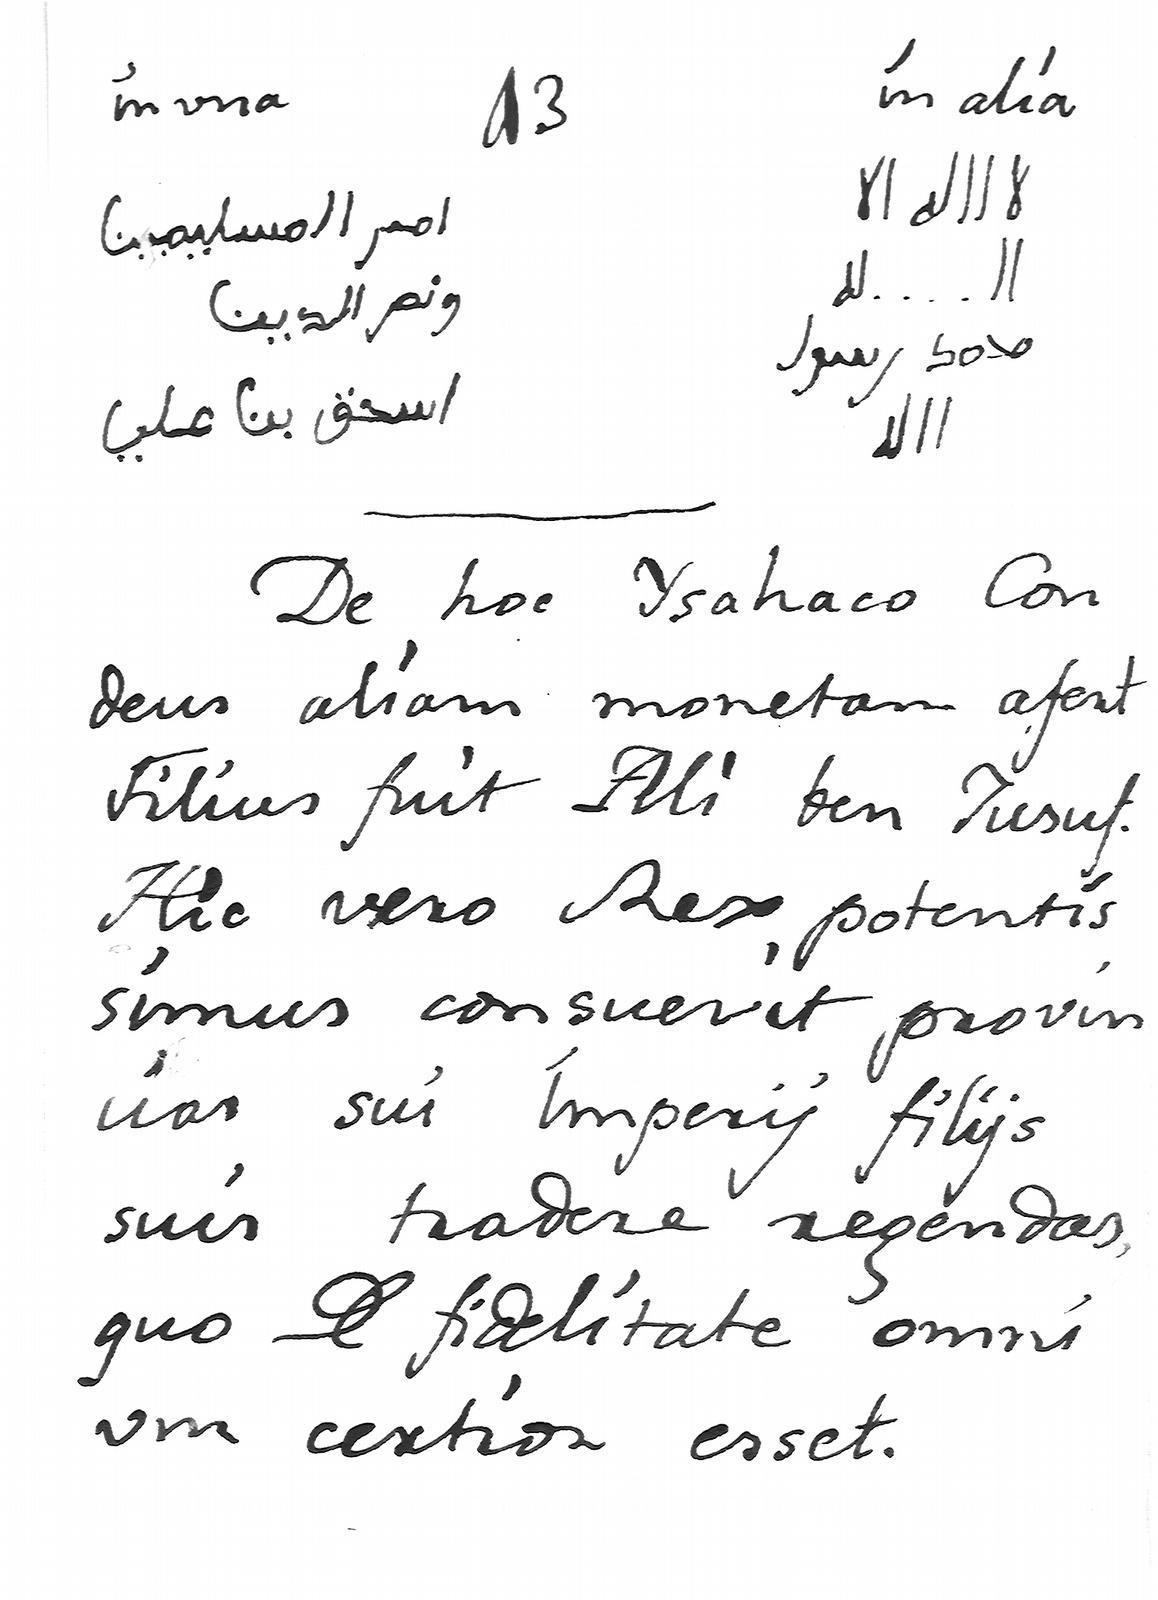 in vna 13 in alia
امير المسليمين لا االه الا
ونصر الدين ال.....له
اسحق بن علي محمد رسول
االله
De hoc Ysahaco Con
deus aliam monetam afert
Filius fuit Ali ben Jusuf.
Hic vero Rex potentis
simus consuevit provin
cias sui Imperij filijs
suis tradere regendas,
quo De fidelitate omni
vm certior esset.